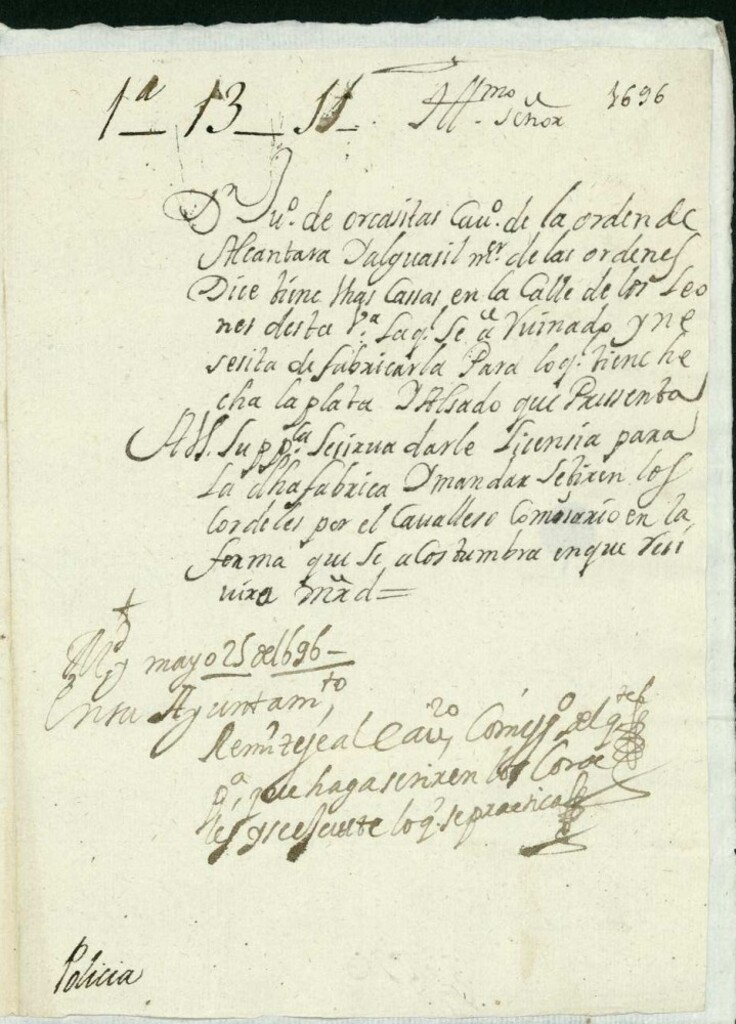 1ª 13 11. Illmo Señor 1696
Dn Juº. de orcasitas Cauº. de la orden de
Alcantara Yalguasil mºr de las ordenes
Dice tiene Vnas Cassas en la Calle de los Leo
nes desta Vª. La q. se a Ruinado y ne
sesita de fabricarla Para lo q. tiene he
cha la planta YAlsado que Pressenta
AVI. Suppca. Se sirua darle licensia para
La dha fabrica Ymandar Setiren los
Cordeles por el Cauallero Comisario en la
forma que Se acostumbra en que Resi
uira mrd =
Md y mayo 25 de 1696 –
En su Ayuntamto,
Remitese al Cauro, Comissº del qtel
qª, que haga se tiren los Corde
les y se ejecute lo q. se practica
Policia